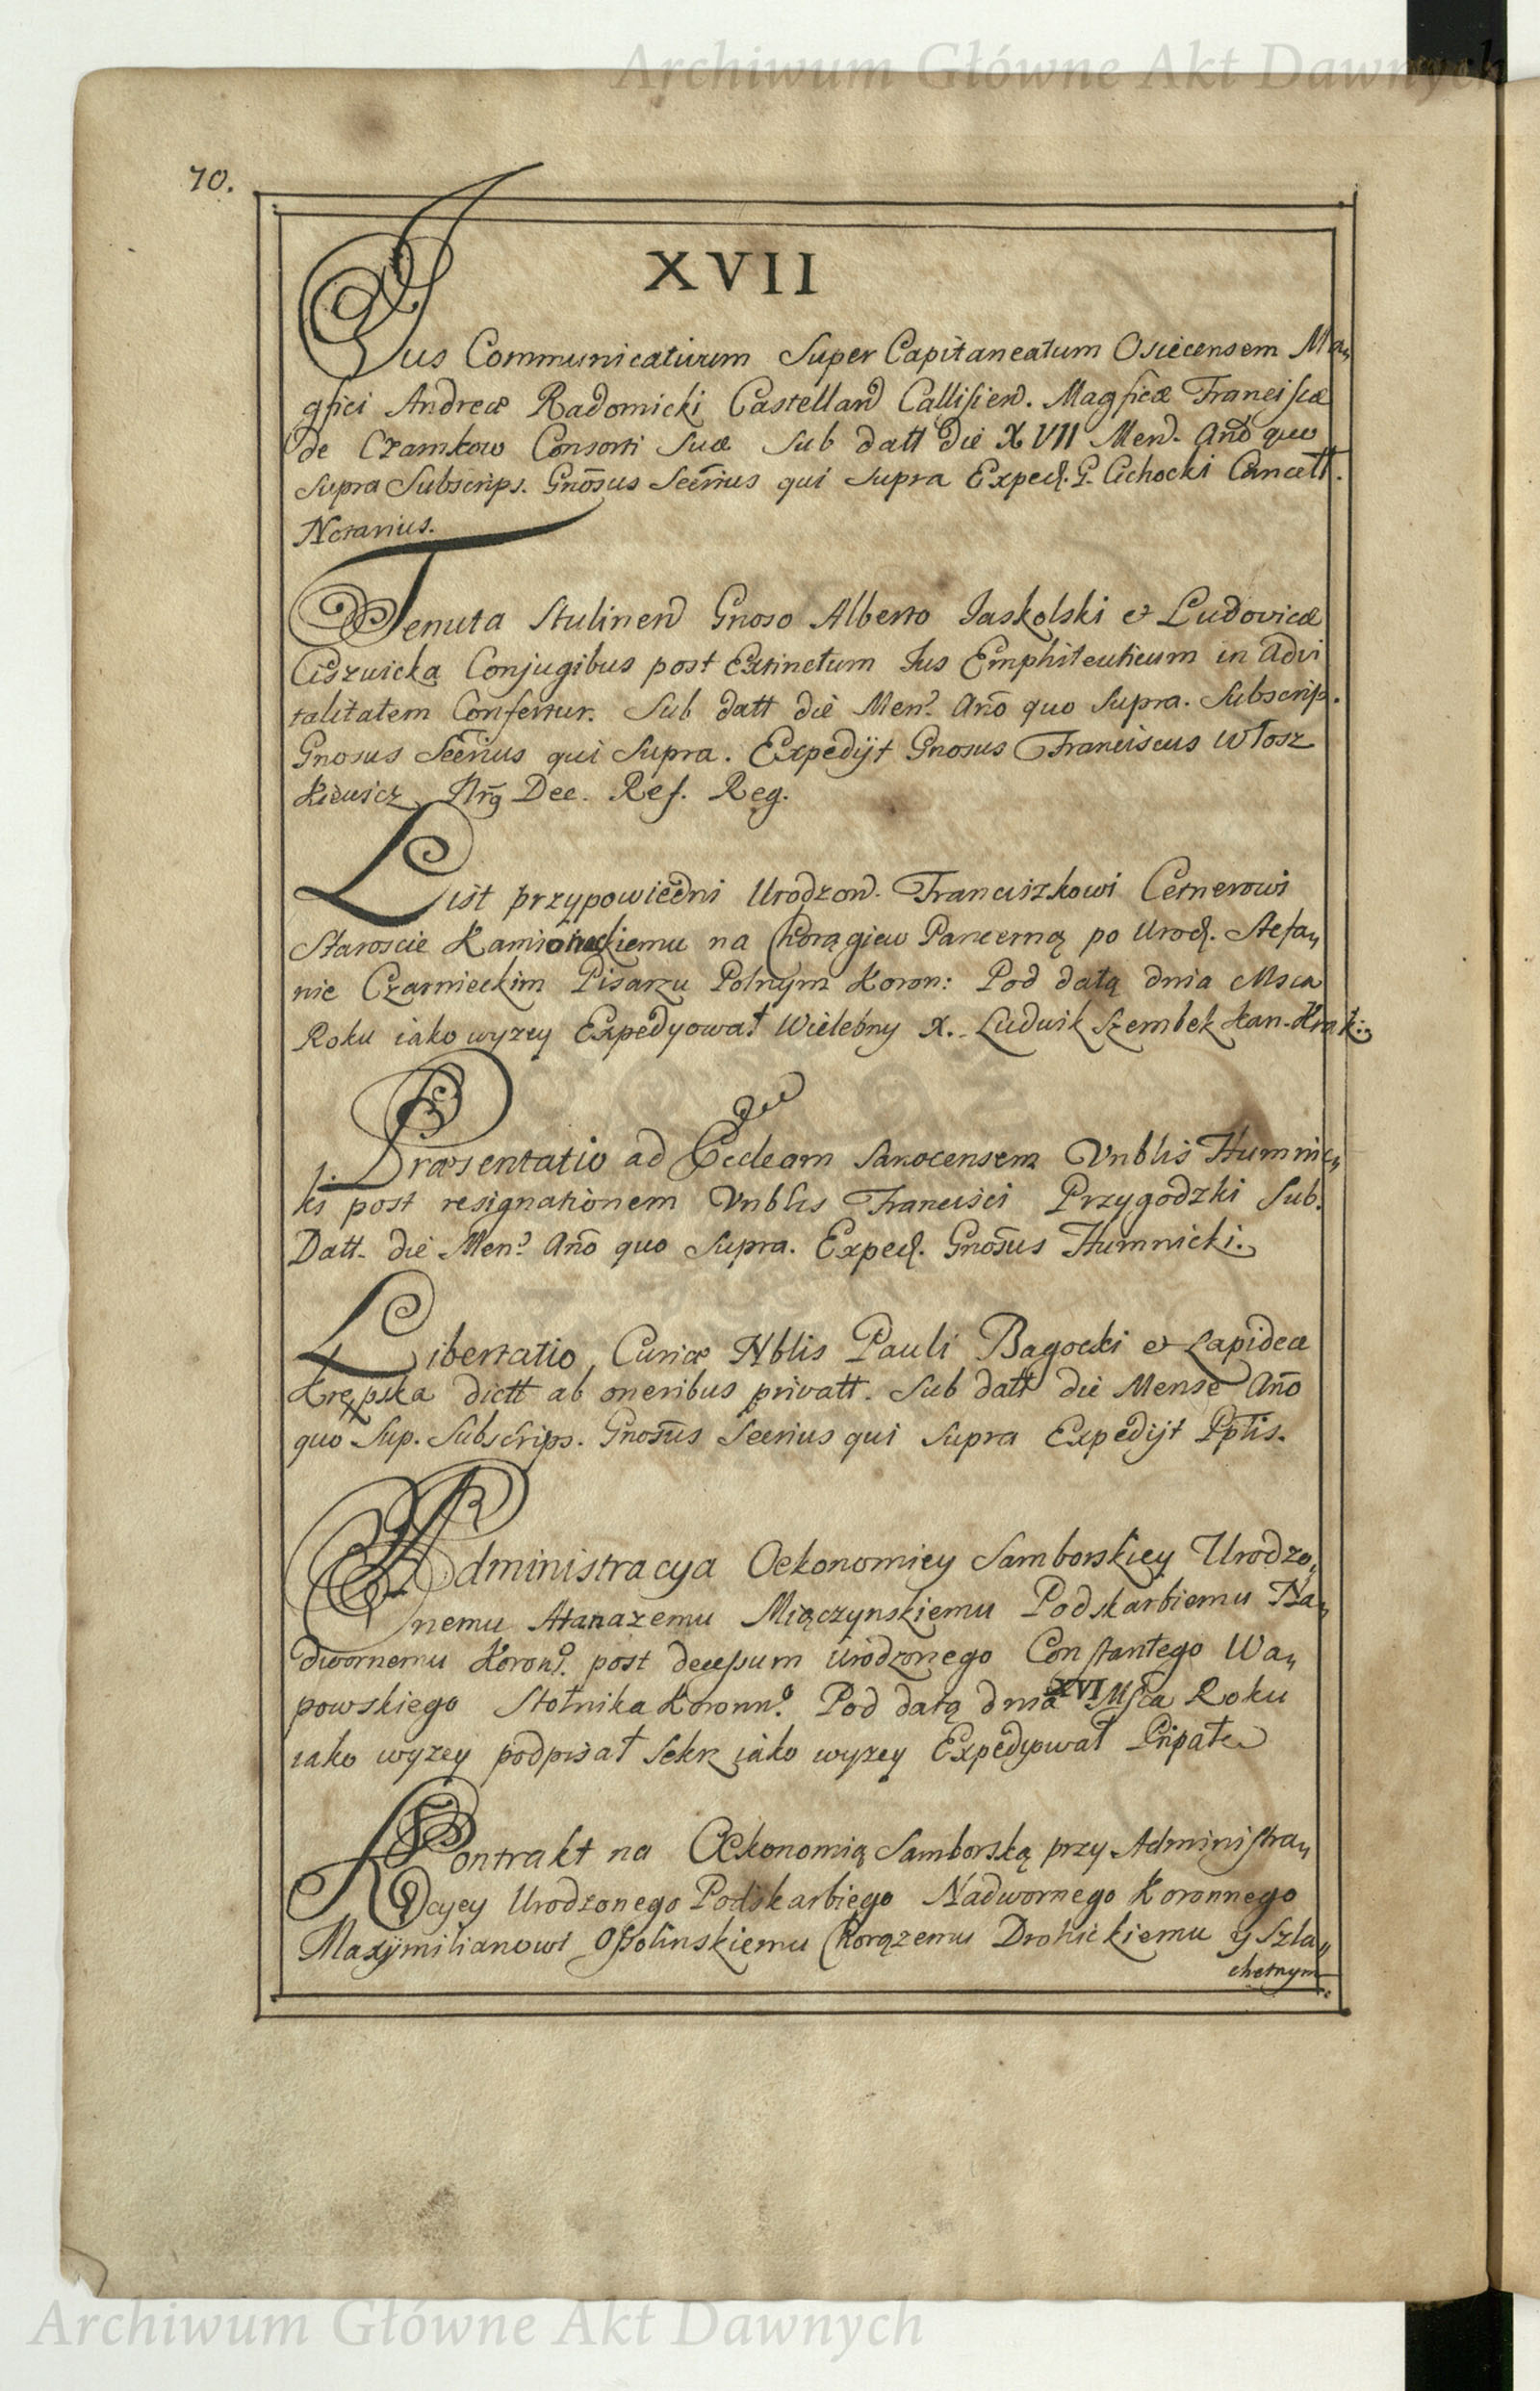 Archiwum Główne Akt Dawnych
70.
XVII
Jus Communicativum Super Capitaneatum Osiecensem Ma„
gfici Andreæ Radomicki Castellan Callisien. Magficæ Franciscæ
de Czarnkow Consorti Suæ Sub datt die XVII Men. Año quo
Supra Subscrips. Gnõsus Seẽrius qui Supra Exped. G. Cichocki Cancell.
Notarius.
Tenuta Stulinen Gnoso Alberto Jaskolski et Ludovicæ
Ciszwicka Conjugibus post Extinctum Jus Emphiteuticum in Advi
talitatem Confertur. Sub datt die Men? Año quo Supra. Subscrip.
Gnosus Seẽrius qui Supra. Expedijt Gnosus Franciscus Włosz
kiewicz Nrõ Dec. Ref. Reg.
List przypowiedni Urodzon. Franciszkowi Cetnerowi
Staroscie Kamionackiemu na Chorągiew Pancerną po Urod. Stefa„
nie Czarnieckim Pisarzu Polnym Koron: Pod datą dnia Msca
Roku iako wyzey Expedyował Wielebny X. Ludwik Szembek Kan. Krak:
Præsentatio ad Eccleam Sanocensem Vnblis Humnic„
ki post resignationem Vnblis Francisci Przygodzki Sub.
Datt. die Men? Año quo Supra. Exped. Gnosus Humnicki.
Libertatio Curiæ Nblis Pauli Bagocki et Lapideæ
Krępska dictt ab oneribus privatt. Sub datt die Mense Año
quo Sup. Subscrips. Gnosus Seerius qui Supra Expedijt Pptis.
Administracya Oekonomiey Samborskiey Urodzo„
nemu Atanazemu Miączynskiemu Podskarbiemu Na„
dwornemu Koron? post decessum Urodzonego Constantego Wa„
powskiego Stolnika Koronn? Pod datą dnia XVI Msca Roku
iako wyzey podpisał Sekr iako wyzey Expedyował
Kontrakt na Oekonomią Samborską przy Administra„
cyey Urodzonego Podskarbiego Nadwornego Koronnego
Maxymilianowi Ossolinskiemu Chorązemu Drohickiemu y Szla„
chetnym
Archiwum Główne Akt Dawnych